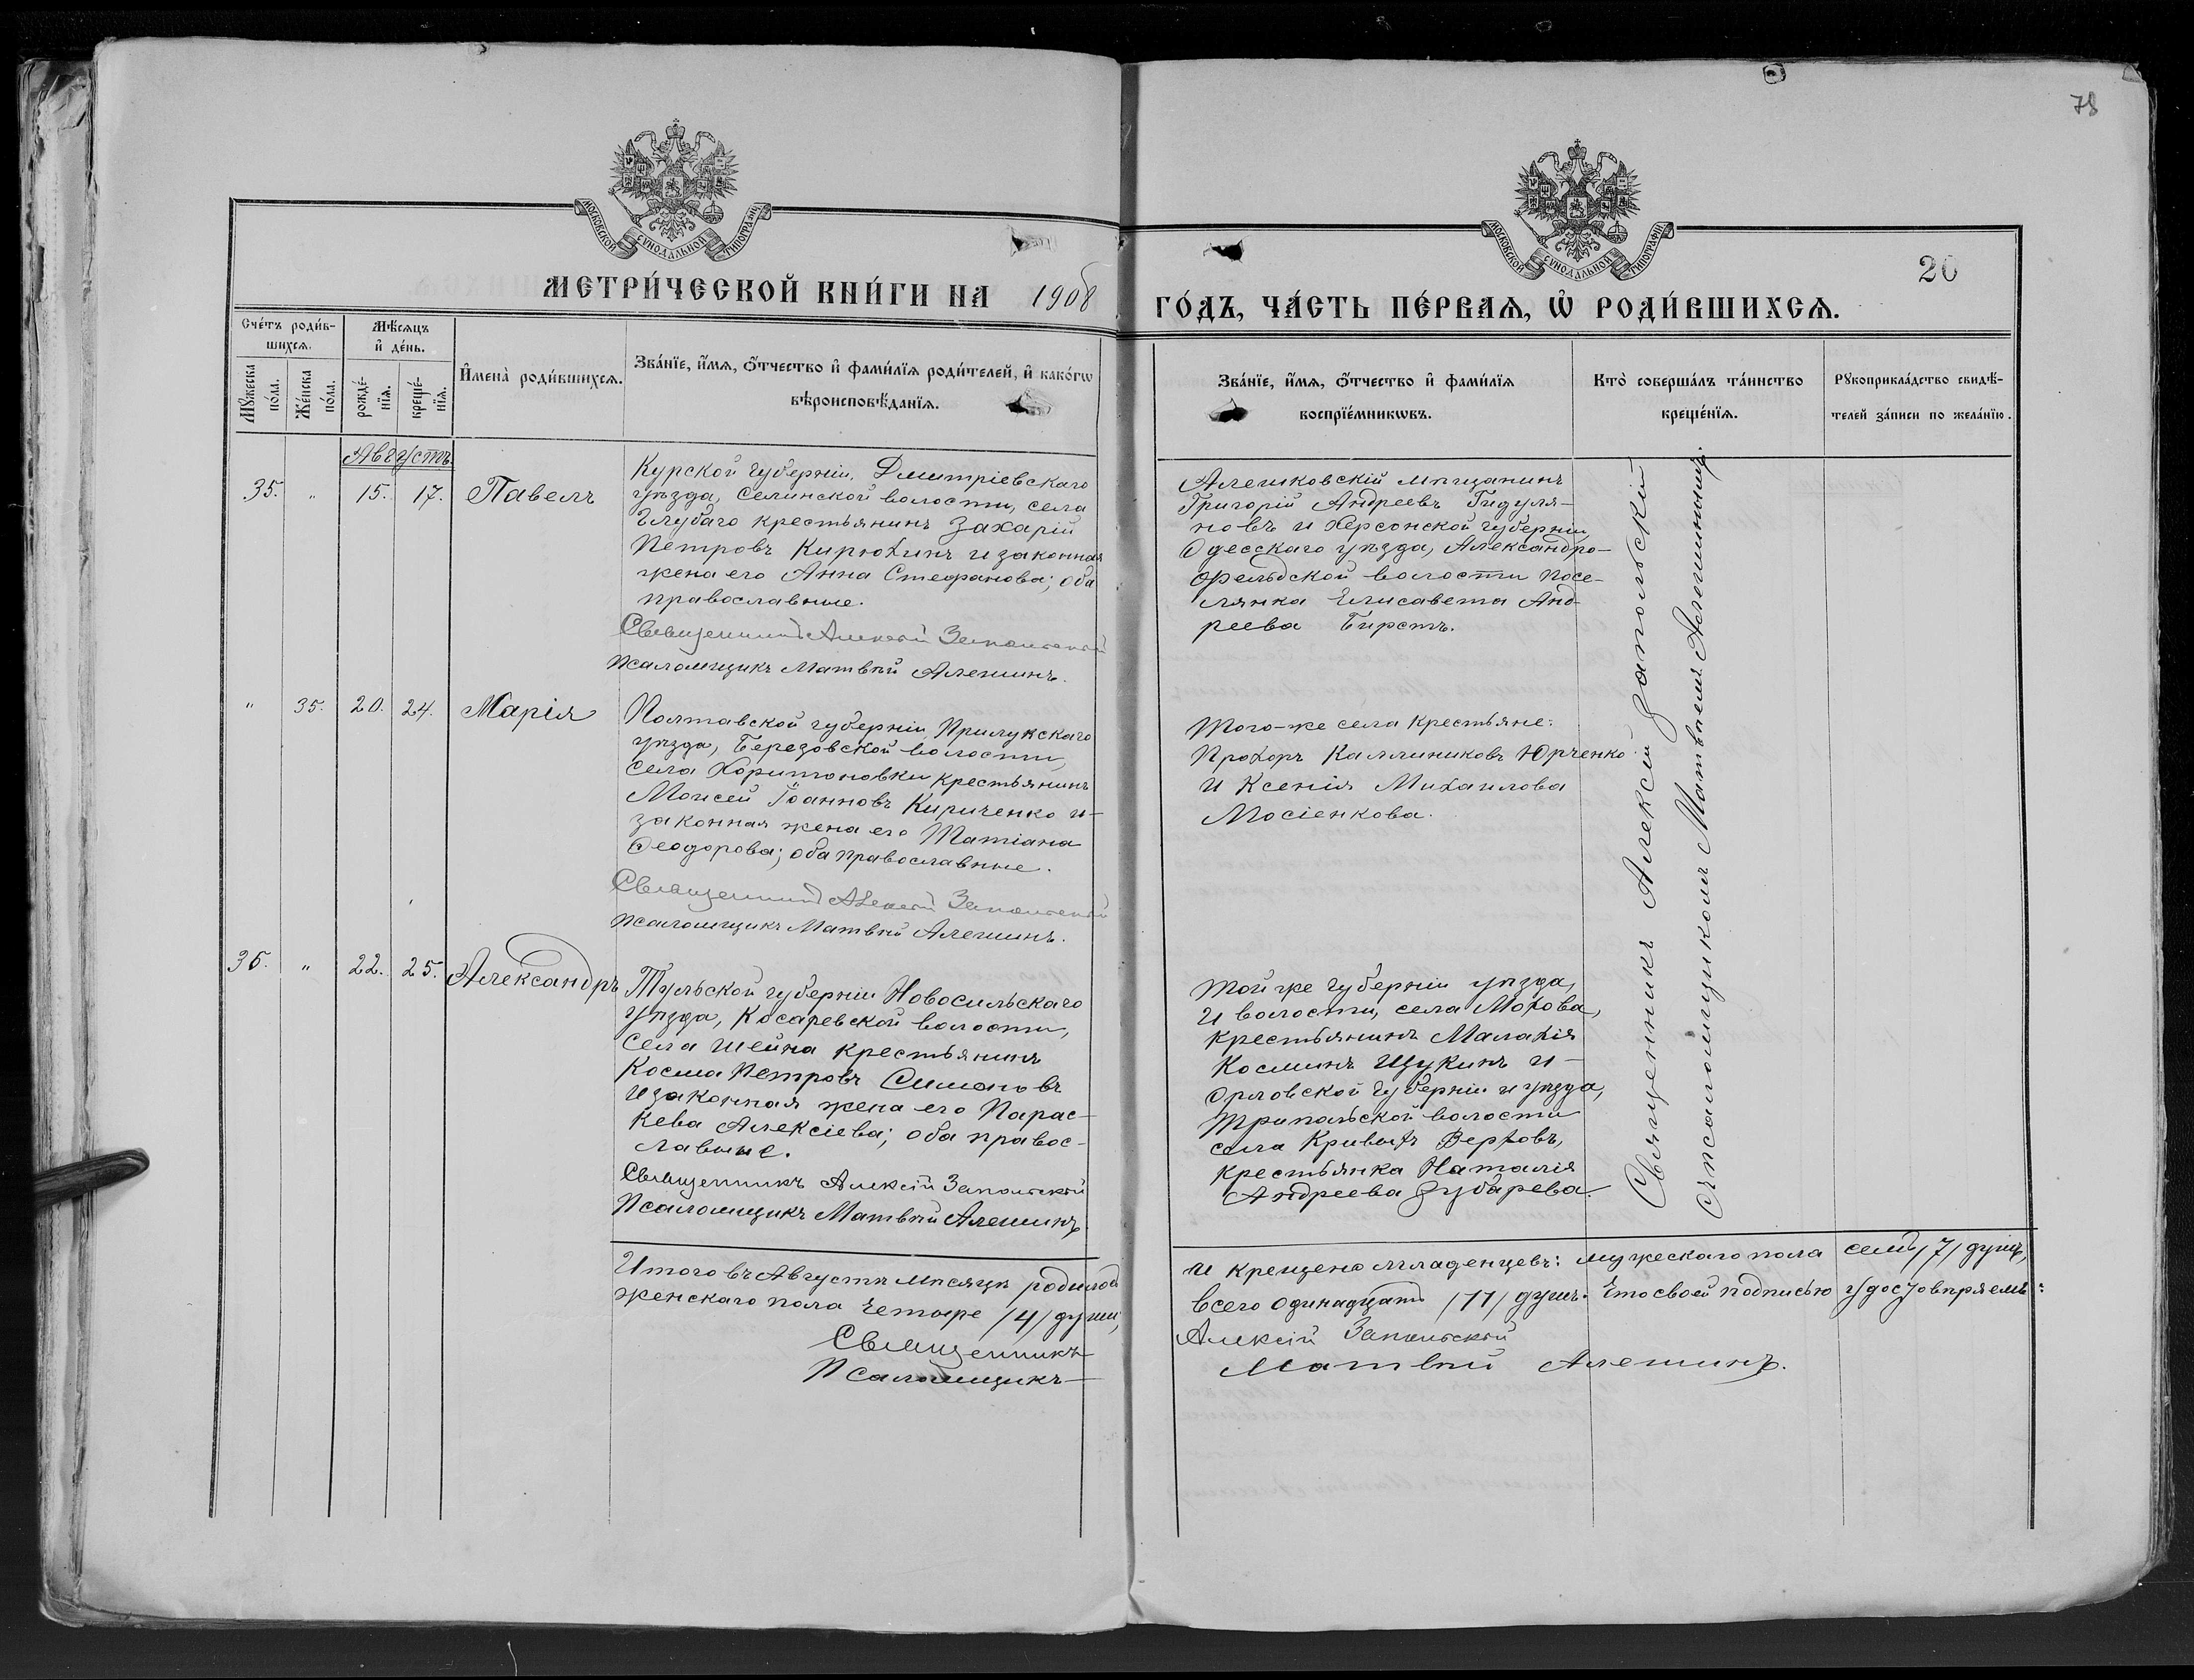 78
МОСКОВСКОЙ СѴНОДАЛЬНОЙ ТИПОГРАФІИ
МОСКОВСКОЙ СѴНОДАЛЬНОЙ ТИПОГРАФІИ
20
МЕТРИ́ЧЕСКОЙ КНИ́ГИ НА 1908
ГО́ДЪ, ЧА́СТЬ ПЕ́РВАѦ, Ѡ҆ РОДИ́ВШИХСѦ.
Сче́тъ роди́в-
шихсѧ.
Мѣ́сѧцъ
и҆ де́нь.
Мꙋ́жеска
по́ла.
Же́нска
по́ла.
рожде́-
нїѧ.
креще́-
нїѧ.
И҆мена̀ роди́вшихсѧ.
Зва́нїе, и҆́мѧ, ѻ҆́тчество и҆ фами́лїѧ роди́телей, и҆ како́гѡ
вѣроисповѣ́данїѧ.
Зва́нїе, и҆́мѧ, ѻ҆́тчество и҆ фами́лїѧ
воспрїе́мникѡвъ.
Кто̀ соверша́лъ та́инство
креще́нїѧ.
Рꙋкоприкла́дство свидѣ́-
телей за́писи по жела́нїю.
Августъ
35. " 15. 17. Павелъ
Курской губерніи, Дмитріевскаго
уѣзда, Селинской волости, села
Глубаго крестьянинъ Захарій
Петровъ Кирюхинъ и законная
жена его Анна Стефанова; оба
православные.
Священникъ Алексій Запольскій
Псаломщикъ Матвѣй Алешинъ.
Алешковскій мѣщанинъ
Григорій Андреевъ Гидуля-
новъ и Херсонской губерніи,
Одесскаго уѣзда, Александро-
фельдской волости посе-
лянка Елисавета Анд-
реева Бирстъ.
" 35. 20. 24. Марія
Полтавской губерніи, Прилукскаго
уѣзда, Березовской волости,
села Харитоновки крестьянинъ
Моисей Іоанновъ Кириченко и-
законная жена его Татіана
Ѳеодорова; оба православные.
Священникъ Алексій Запольскій
Псаломщикъ Матвѣй Алешинъ.
Того-же села крестьяне:
Прохоръ Каллиниковъ Юрченко
и Ксенія Михаилова
Мосіенкова.
36. " 22. 25. Александръ
Тульской губерніи Новосильскаго
уѣзда, Косаревской волости,
села Шейна крестьянинъ
Косма Петровъ Симоновъ
и законная жена его Парас-
кева Алексіева; оба правос-
лавные.
Священникъ Алексій Запольскій
Псаломщикъ Матвѣй Алешинъ.
Той же губерніи уѣзда,
и волости, села Мохова,
крестьянинъ Малахія
Косминъ Щукинъ и-
Орловской губерніи и уѣзда,
села Кривыхъ Верховъ,
крестьянка Наталія
Андреева Зубарева.
Священникъ Алексій Запольскій
съ псаломщикомъ Матвѣемъ Алешинымъ.
Итого въ Августѣ мѣсяцѣ родилось
женскаго пола четыре /4/ души,
Священникъ
Псаломщикъ
и крещено младенцевъ: мужескаго пола семь /7/ душъ,
всего одинадцать /11/ душъ. Что своей подписью удостовѣряемъ:
Алексій Запольскій
Матвѣй Алешинъ.